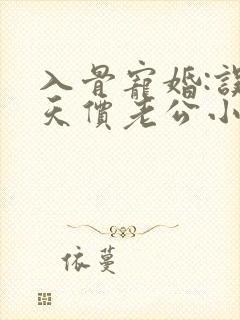 入骨寵婚:誤
天價老公小
依蔓